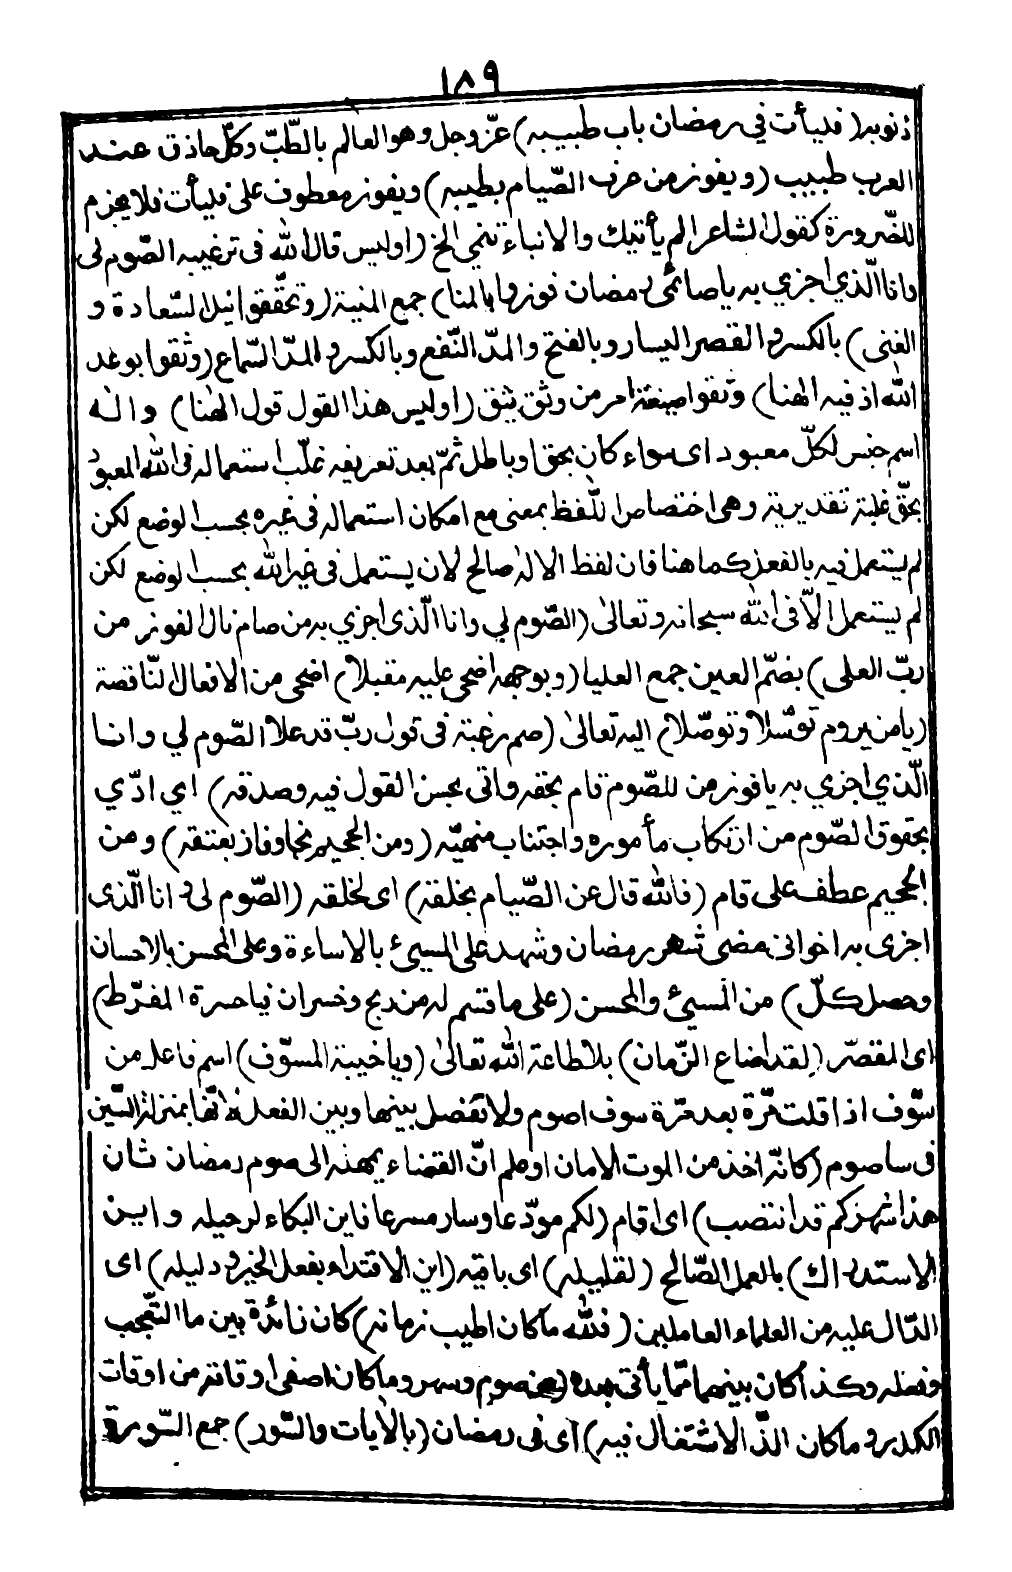 ١٨٩
ذنوبه (فليأت في رمضان باب طبيبه) عزّ وجل وهو العالم بالطّبّ وكلّ حاذق عند
العرب طبيب (ويفوز من عرف الصّيام بطيبه) ويفوز معطوف على فليأت فلا يجزم
للضّرورة كقول الشاعر الم يأتيك والانباء تنمي الخ (اوليس قال الله فى ترغيبه الصّوم لى
وانا الّذي اجزي به يا صائمى رمضان فوزوا بالمنا) جمع المنية (وتحقّقوا نيل السّعادة و
الغنى) بالكسر والقصر اليسار وبالفتح والمدّ النّفع وبالكسر والمدّ السّماع (وثقوا بوعد
الله اذ فيه الهنا) وثقوا صيغة امر من وثق يثق (اوليس هذا القول قول الهنا) واله
اسم جنس لكلّ معبود اى سواء كان بحق او باطل ثمّ بعد تعريفه غلّب استعماله فى الله المعبود
بحقّ غلبة تقديرية وهى اختصاص اللّفظ بمعنى مع امكان استعماله فى غيره بحسب الوضع لكن
لم يستعمل فيه بالفعل كما هنا فان لفظ الاله صالح لان يستعمل فى غير الله بحسب الوضع لكن
لم يستعمل الّا فى الله سبحانه وتعالى (الصّوم لي وانا الّذى اجزي به من صام نال الفوز من
ربّ العلى) بضمّ العين جمع العليا (وبوجهه اضحى عليه مقبلا) اضحى من الافعال النّاقصة
(يا من يروم توسّلا وتوصّلا) اليه تعالى (صم رغبة فى قول ربّ قد علا الصّوم لي وانا
الّذي اجزي به يا فوز من للصّوم قام بحقه واتى بحسن القول فيه وصدقه) اي ادّي
بحقوق الصّوم من ارتكاب مأموره واجتناب منهيّه (ومن الجحيم نجا وفاز بعتقه) ومن
الجحيم عطف على قام (فالله قال عن الصّيام بخلقه) اى لخلقه (الصّوم لى وانا الّذى
اجزى به اخوانى مضى شهر رمضان وشهد على المسيئ بالاساءة وعلى المحسن بالاحسان
وحصل كلّ) من المسيئ والمحسن (على ما قسم له من ربح وخسران فيا حسرة المفرّط)
اى المقصّر (لقد اضاع الزّمان) بلا طاعة الله تعالى (ويا خيبة المسوّف) اسم فاعل من
سوّف اذا قلت مرّة بعد مرّة سوف اصوم ولا تفصل بينها وبين الفعل لانّها بمنزلة السّين
فى ساصوم (كانّه اخذ من الموت الامان او علم انّ القضاء يمهله الى صوم رمضان ثان
هذا شهركم قد انتصب) اى اقام (لكم مودّعا وسار مسرعا فاين البكاء لرحيله واين
الاستدراك) بالعمل الصّالح (لقليله) اى باقيه (اين الاقتداء بفعل الخير ودليله) اى
الدّال عليه من العلماء العاملين (فلله ما كان اطيب زمانه) كان زائدة بين ما التّعجب
وفعله وكذا كان بينهما ممّا يأتى بعده (من صوم وسهر وما كان اصفى اوقاته من اوقات
الكدر وما كان الذّ الاشتغال فيه) اى فى رمضان (بالآيات والسّور) جمع السّورة